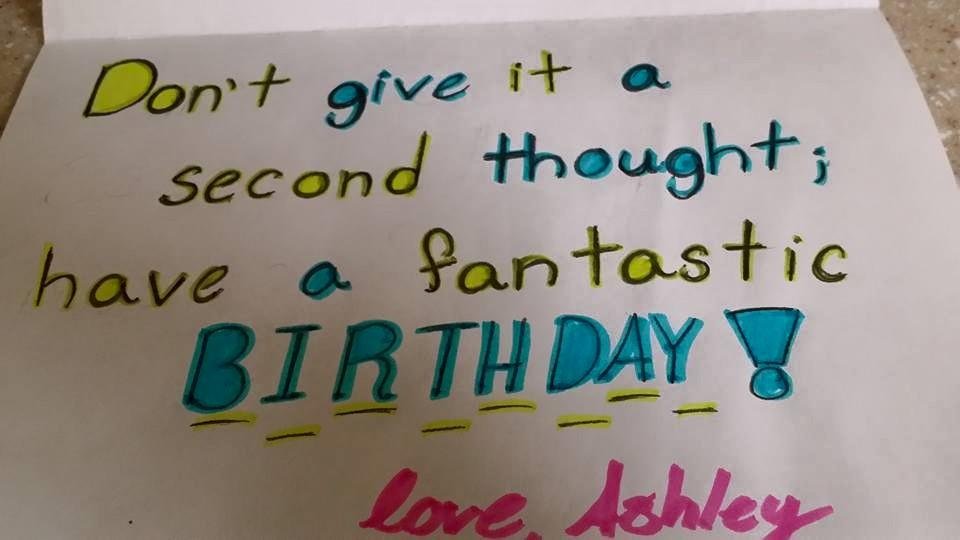 Don't give it a
second thought;
have a fantastic
BIRTHDAY!
love, Ashley